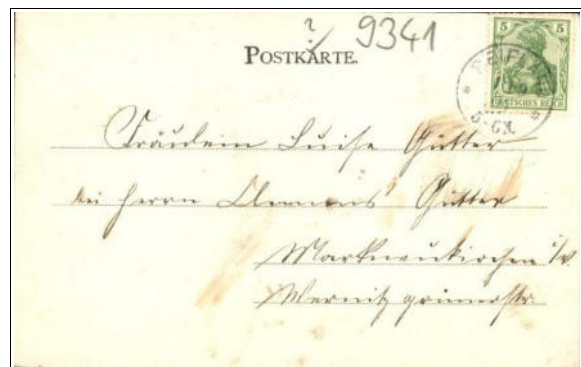 ? 9341
POSTKARTE.
5 5
DEUTSCHES REICH
5-6N.
Fräulein Luise Gütter
bei Herrn Clemens Gütter
Markneukirchen i/V.
Wernitzgrünerstr.